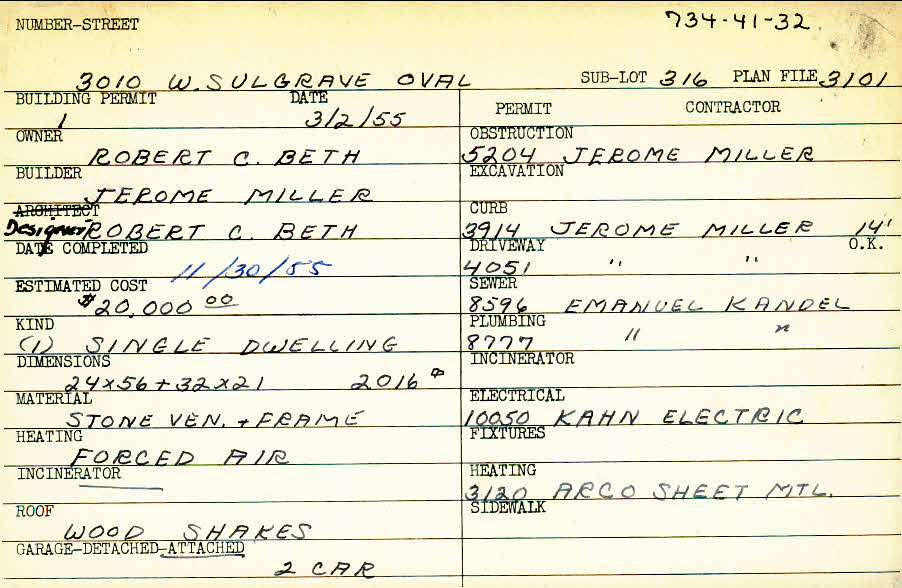 734-41-32
NUMBER-STREET
3010 W. SULGRAVE OVAL SUB-LOT 316 PLAN FILE 3101
BUILDING PERMIT DATE
1 3/2/55
OWNER
ROBERT C. BETH
BUILDER
JEROME MILLER
ARCHITECT
Designer ROBERT C. BETH
DATE COMPLETED
11/30/55
ESTIMATED COST
$20,000 00
KIND
(1) SINGLE DWELLING
DIMENSIONS
24x56+32x21 2016
MATERIAL
STONE VEN. + FRAME
HEATING
FORCED AIR
INCINERATOR
ROOF
WOOD SHAKES
GARAGE-DETACHED-ATTACHED
2 CAR
PERMIT CONTRACTOR
OBSTRUCTION
5204 JEROME MILLER
EXCAVATION
CURB
3914 JEROME MILLER 14'
DRIVEWAY O.K.
4051 " "
SEWER
8596 EMANUEL KANDEL
PLUMBING
8777 " "
INCINERATOR
ELECTRICAL
10050 KAHN ELECTRIC
FIXTURES
HEATING
3120 ARCO SHEET MTL.
SIDEWALK